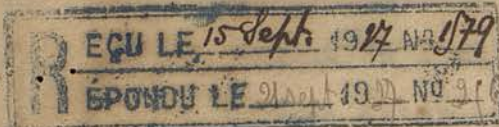 REÇU LE 15 Sept. 1927 No 1579
RÉPONDU LE 21 Sept 1927 No